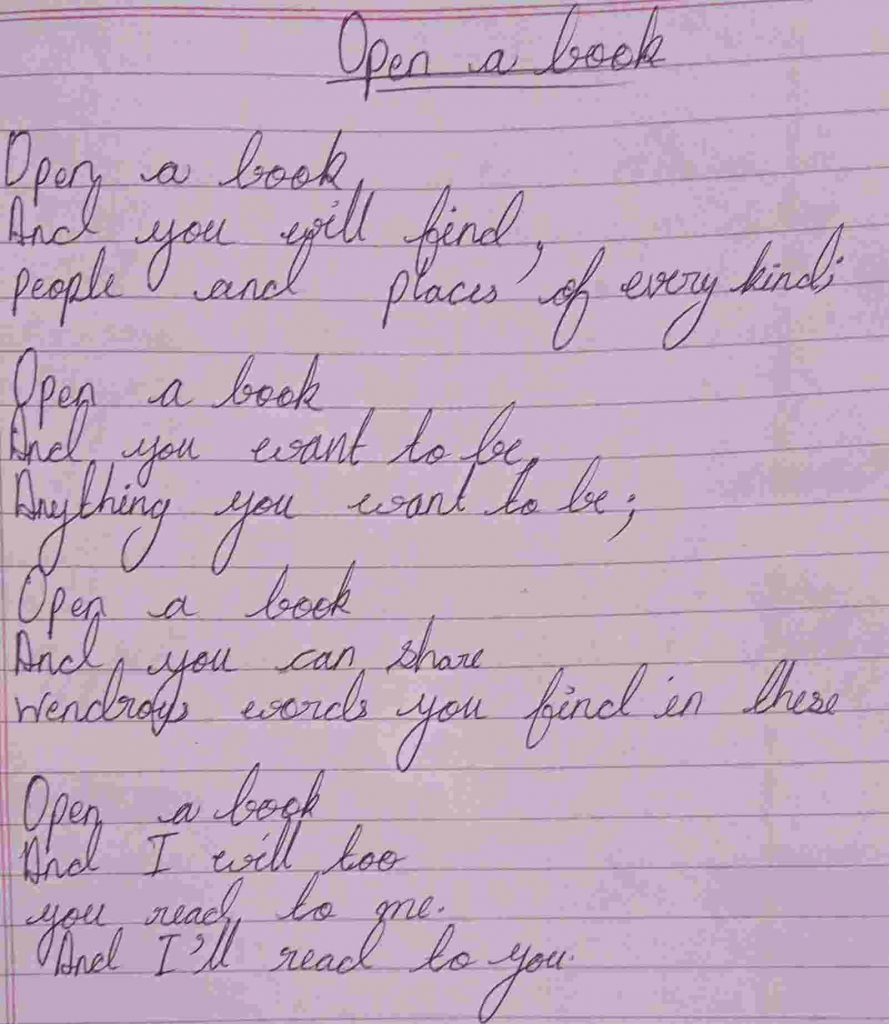 Open a book
Open a book
And you will find,
people and places of every kind;
Open a book
And you want to be,
Anything you want to be;
Open a book
And you can share
wendroys words you find in these
Open a book
And I will too
you read to me.
And I'll read to you.